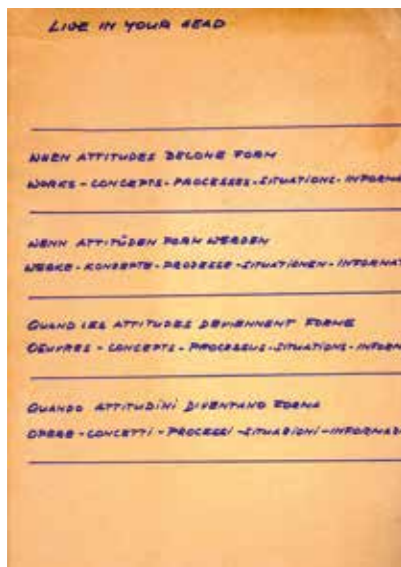 LIVE IN YOUR HEAD
WHEN ATTITUDES BECOME FORM
WORKS - CONCEPTS - PROCESSES - SITUATIONS - INFORMA
WENN ATTITÜDEN FORM WERDEN
WERKE - KONZEPTE - PROZESSE - SITUATIONEN - INFORMAT
QUAND LES ATTITUDES DEVIENNENT FORME
OEUVRES - CONCEPTS - PROCESSUS - SITUATIONS - INFORM
QUANDO ATTITUDINI DIVENTANO FORMA
OPERE - CONCETTI - PROCESSI - SITUAZIONI - INFORMAZI